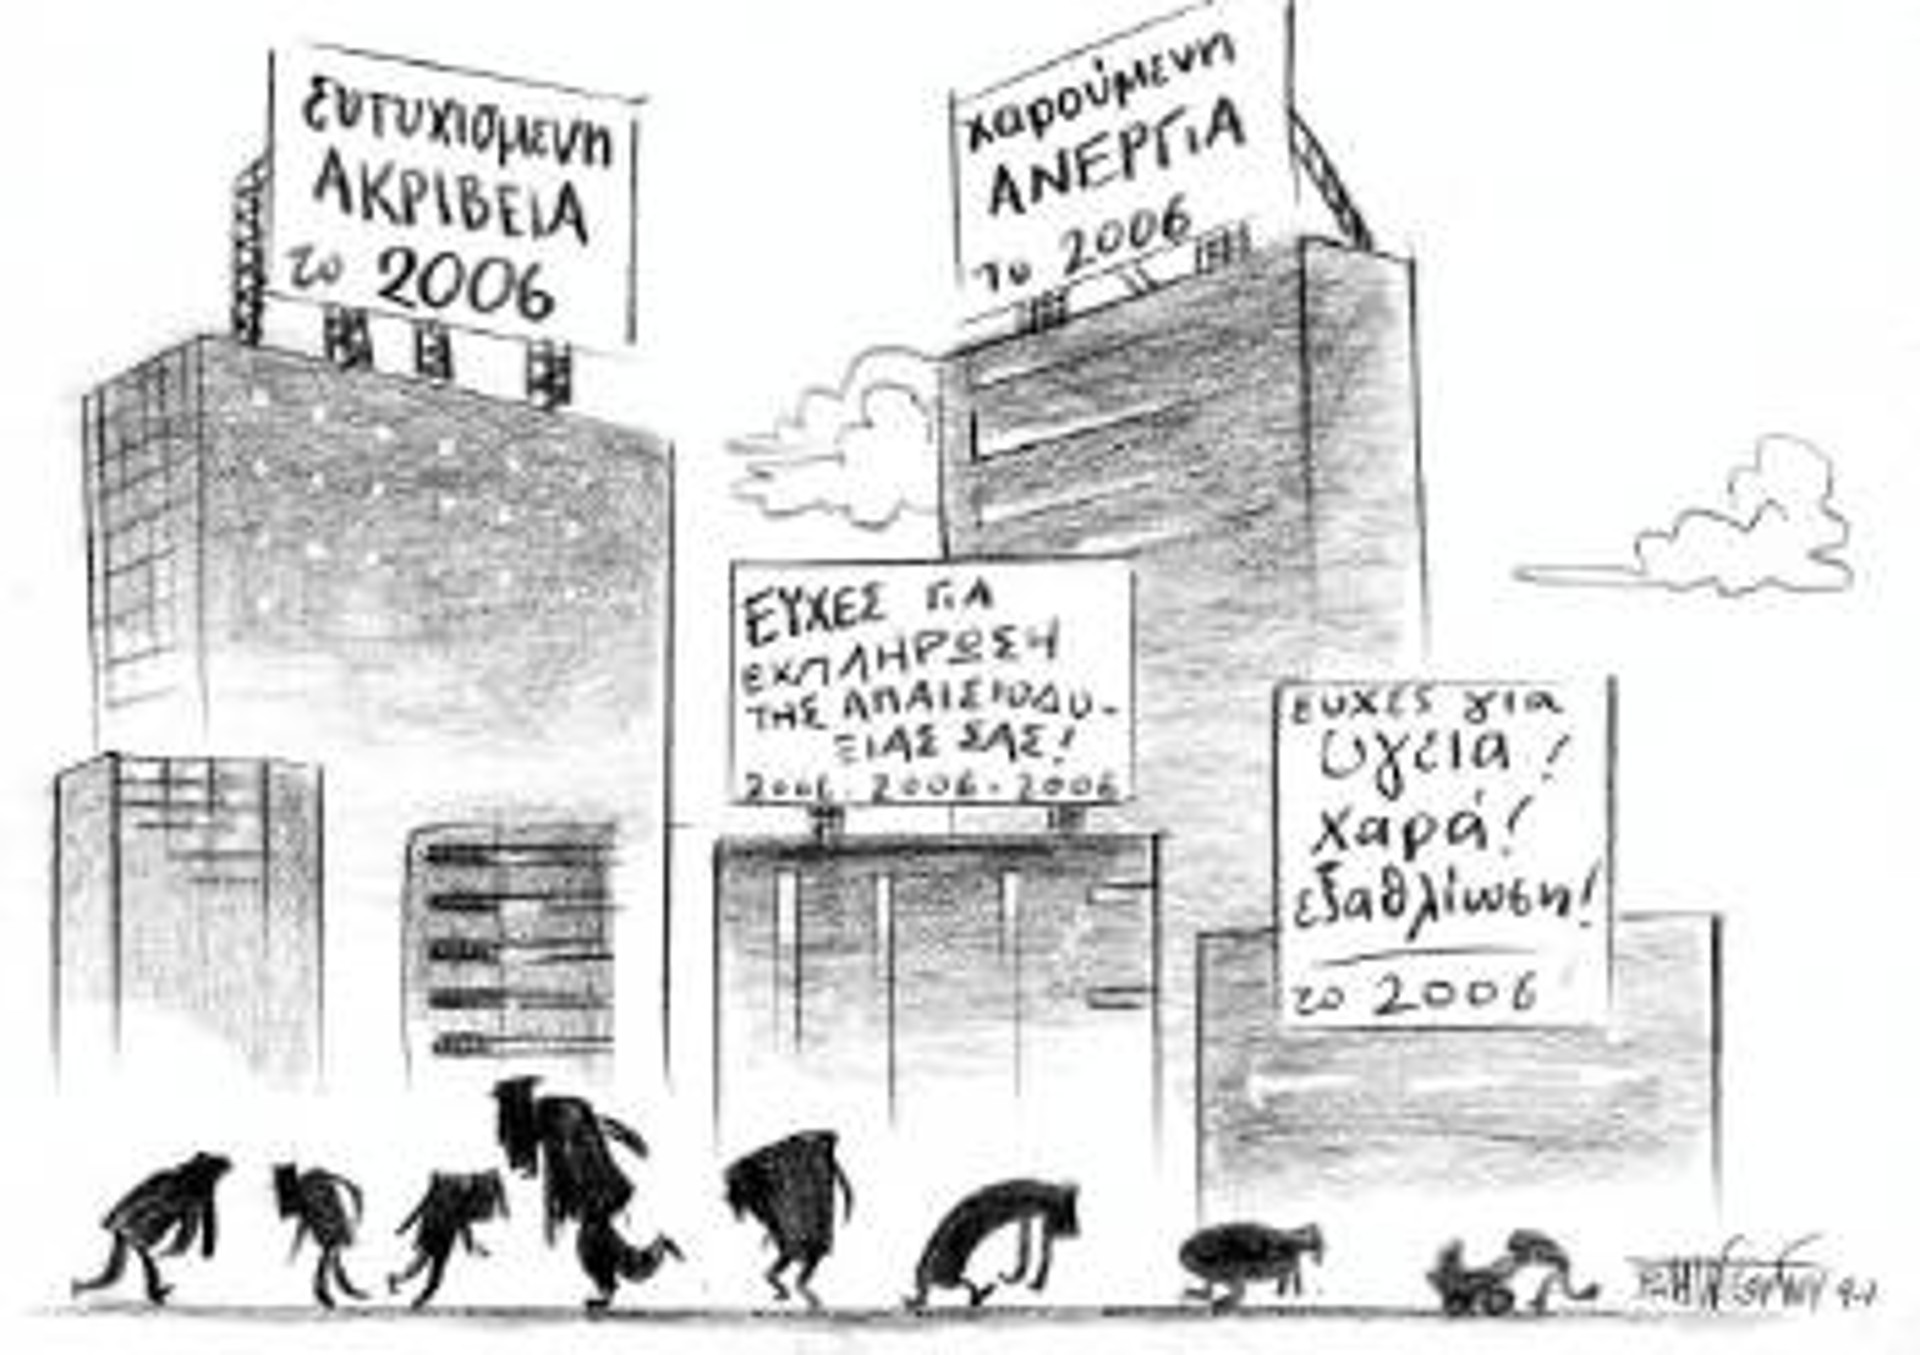 ευτυχισμενη
ΑΚΡΙΒΕΙΑ
το 2006
χαρούμενη
ΑΝΕΡΓΙΑ
το 2006
ΕΥΧΕΣ ΓΙΑ
ΕΚΠΛΗΡΩΣΗ
ΤΗΣ ΑΠΑΙΣΙΟΔΟ-
ΞΙΑΣ ΣΑΣ!
2006. 2006. 2006
ευχες για
υγεία!
χαρά!
εξαθλίωση!
το 2006